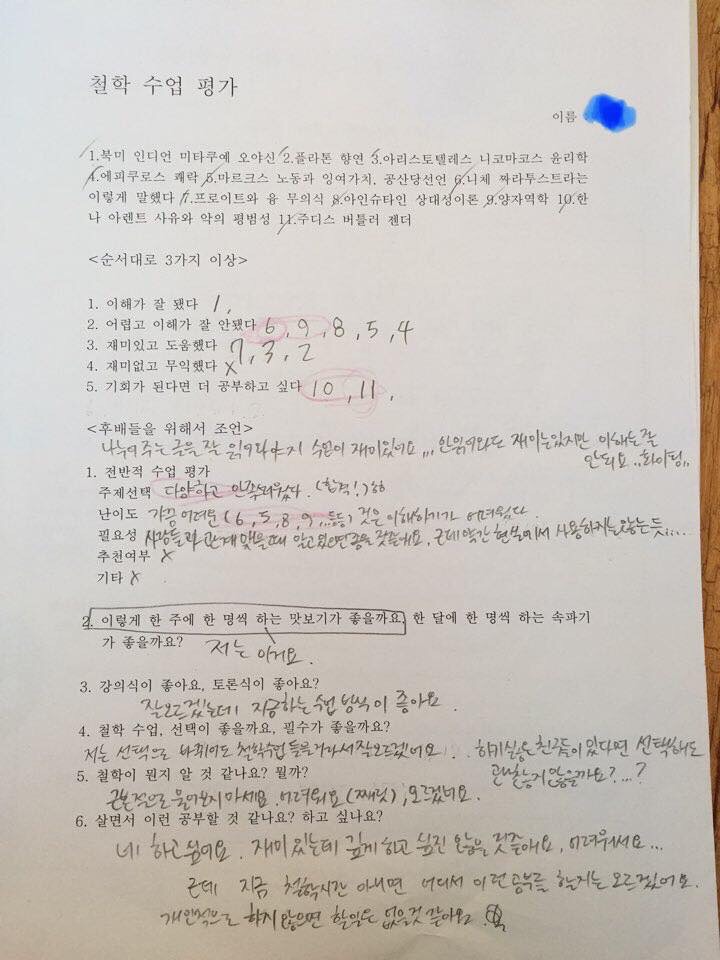 철학 수업 평가
이름
1.북미 인디언 미타쿠예 오야신 2.플라톤 향연 3.아리스토텔레스 니코마코스 윤리학
4.에피쿠로스 쾌락 5.마르크스 노동과 잉여가치, 공산당선언 6.니체 짜라투스트라는
이렇게 말했다 7.프로이트와 융 무의식 8.아인슈타인 상대성이론 9.양자역학 10.한
나 아렌트 사유와 악의 평범성 11.주디스 버틀러 젠더
<순서대로 3가지 이상>
1. 이해가 잘 됐다 1,
2. 어렵고 이해가 잘 안됐다 6, 9, 8, 5, 4
3. 재미있고 도움했다 7, 3, 2
4. 재미없고 무익했다 x
5. 기회가 된다면 더 공부하고 싶다 10, 11,
<후배들을 위해서 조언>
나누어 주는 글을 잘 읽어와야지 수업이 재미있어요... 안읽어와도 재미는있지만 이해는잘
안되요..화이팅..
1. 전반적 수업 평가
주제선택 다양하고 만족되웠다. (합격!) ㅎㅎ
난이도 가끔 어려운 (6, 5, 8, 9, ..등등) 것은 이해하기가 어려웠다.
필요성 사람들과 관계 맺을때 알고있으면 좋을것같아요. 근데 약간 현실에서 사용하지는않는듯....
추천여부 x
기타 x
2. 이렇게 한 주에 한 명씩 하는 맛보기가 좋을까요, 한 달에 한 명씩 하는 속파기
가 좋을까요? 저는 이거요.
3. 강의식이 좋아요, 토론식이 좋아요?
잘모르겠는데 지금하는 수업 방식이 좋아요.
4. 철학 수업, 선택이 좋을까요, 필수가 좋을까요?
저는 선택으로 바뀌어도 철학수업 들을거라서 잘모르겠어요.. 하기싫은 친구들이 있다면 선택해도
괜찮지 않을까요?...?
5. 철학이 뭔지 알 것 같나요? 뭘까?
근본적으로 물어보지마세요. 어려워요 (찌릿), 모르겠네요.
6. 살면서 이런 공부할 것 같나요? 하고 싶나요?
네! 하고싶어요. 재미있는데 깊게 하고 싶진 않을 것같아요, 어려워서요...
근데 지금 철학시간 아니면 어디서 이런공부를 할지는 모르겠어요.
개인적으로 하지 않으면 할일은 없을것 같아요.